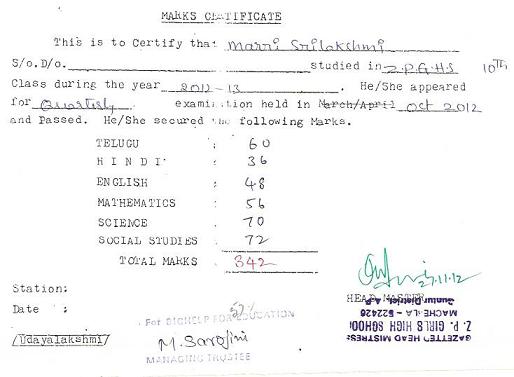 MARKS CERTIFICATE
This is to Certify that Marri Srilakshmi
S/o.D/o. studied in Z.P.G.H.S 10TH
Class during the year 2012-13. He/She appeared
for Quarterly examination held in March/April Oct 2012
and Passed. He/She secured the following Marks.
TELUGU : 60
HINDI : 36
ENGLISH : 48
MATHEMATICS : 56
SCIENCE : 70
SOCIAL STUDIES : 72
TOTAL MARKS : 342
27.11.12
Station:
HEAD MASTER
Date :
57%
GAZETTED HEAD MISTRESS
Z. P. GIRLS HIGH SCHOOL
MACHERLA - 522426
Guntur District, A.P.
For BIGHELP FOR EDUCATION
/Udayalakshmi/
M. Sarojini
MANAGING TRUSTEE